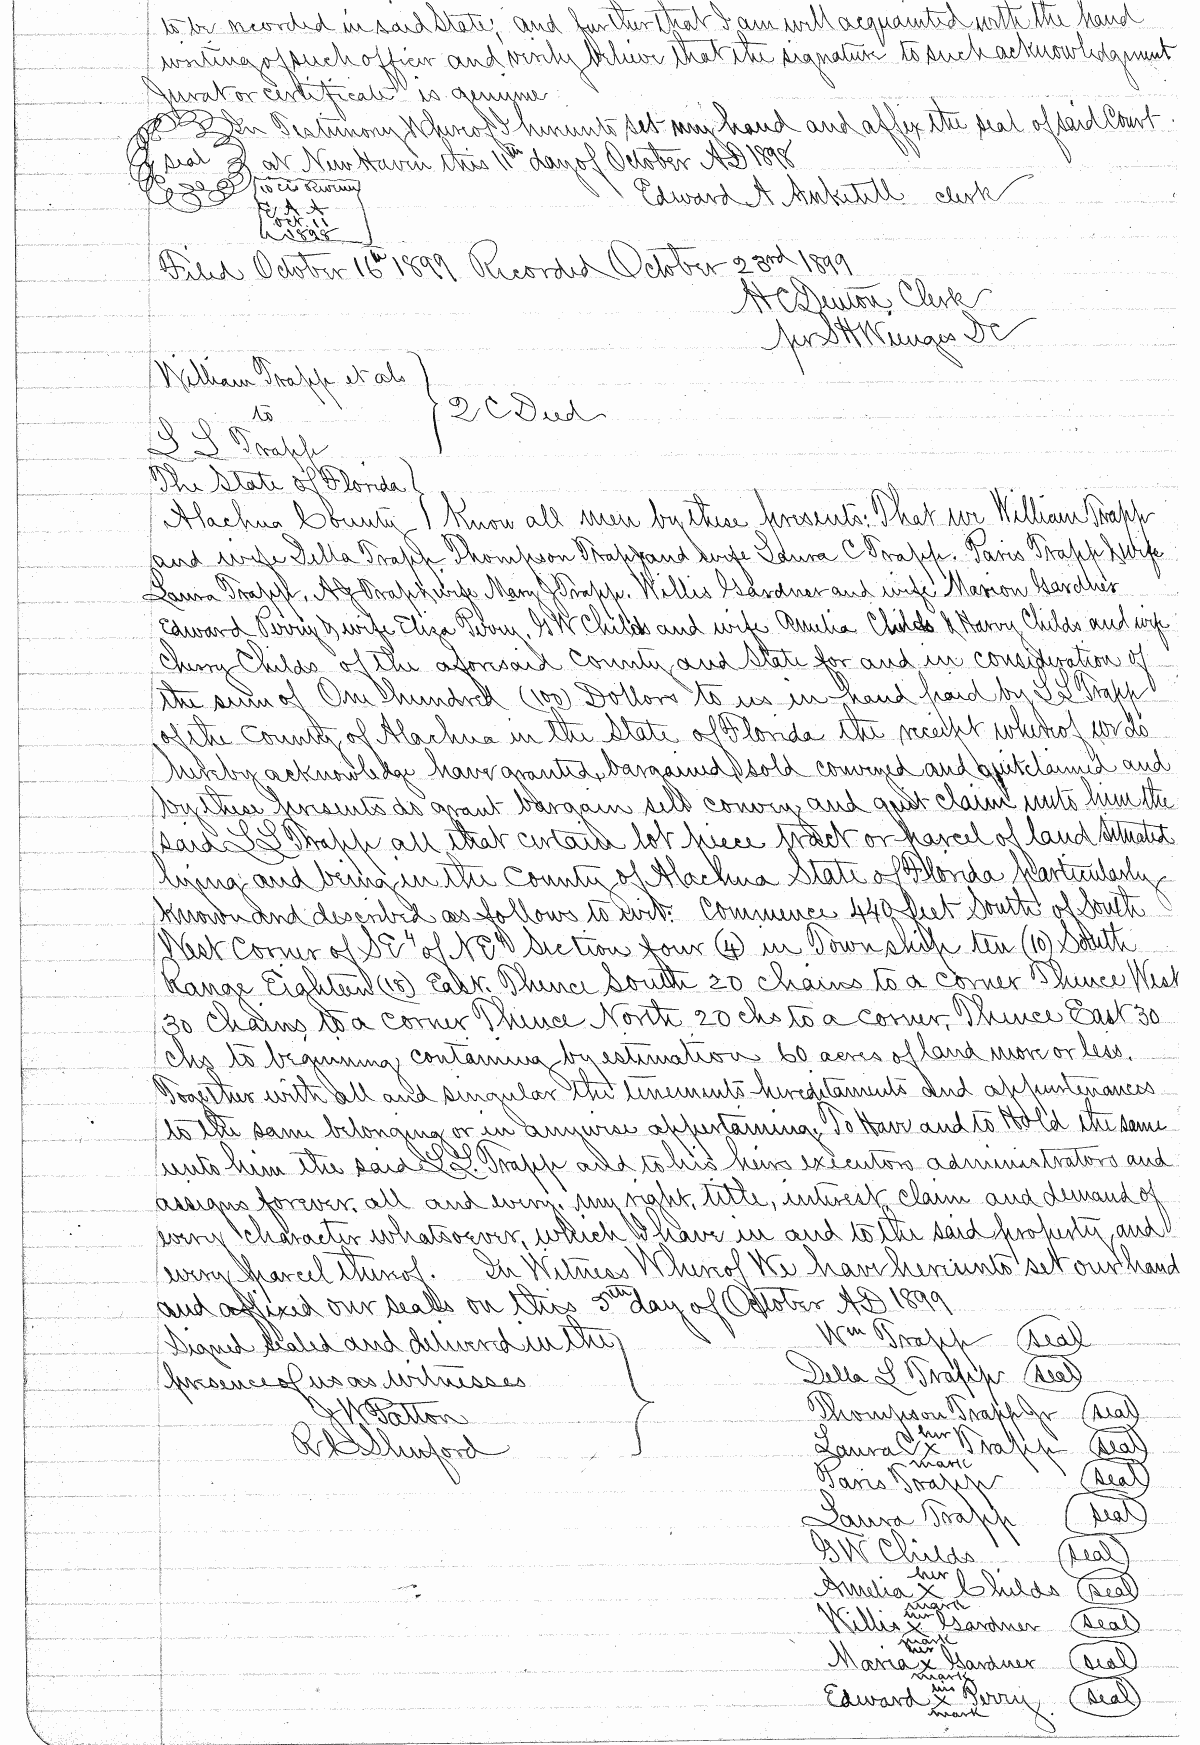 to be recorded in said State; and further that I am well acquainted with the hand
writing of such officer and verily believe that the signature to such acknowledgment
jurat or certificate is genuine
In Testimony Whereof I hereunto set my hand and affix the seal of said Court
seal at New Haven this 11th day of October AD 1898
10 cts Revenue
E A A
Oct. 11
1898
Edward A Anketell clerk
Filed October 16th 1899 Recorded October 23rd 1899
H C Denton, Clerk
per S H Wienges DC
William Trapp et als
to
L L Trapp
2 C Deed
The State of Florida
Alachua County Know all men by these presents: That we William Trapp
and wife Della Trapp Thompson Trapp and wife Laura C Trapp. Paris Trapp & wife
Laura Trapp, A J Trapp & wife Mary J Trapp. Willis Gardner and wife Marion Gardner
Edward Perry & wife Eliza Perry, G W Childs and wife Amelia Childs & Harry Childs and wife
Cherry Childs of the aforesaid County and State for and in consideration of
the sum of One hundred (100) Dollars to us in hand paid by L L Trapp
of the County of Alachua in the State of Florida the receipt whereof we do
hereby acknowledge have granted, bargained, sold conveyed and quitclaimed and
by these presents do grant bargain sell convey and quit claim unto him the
said L L Trapp all that certain lot piece tract or parcel of land situated
lying and being in the County of Alachua State of Florida particularly
known and described as follows to wit: Commence 440 feet South of South
West Corner of SE4 of NE4 Section four (4) in Township ten (10) South
Range Eighteen (18) East. Thence South 20 chains to a corner Thence West
30 chains to a corner Thence North 20 chs to a corner, Thence East 30
chs to beginning, containing by estimation 60 acres of land more or less.
Together with all and singular the tenements hereditaments and appurtenances
to the same belonging or in anywise appertaining. To Have and to Hold the same
unto him the said L. L. Trapp and to his heirs executors administrators and
assigns forever, all and every, my right, title, interest, claim and demand of
every character whatsoever, which I have in and to the said property, and
every parcel thereof. In Witness Whereof We have hereunto set our hand
and affixed our seals on this 5th day of October AD 1899
Signed sealed and delivered in the
presence of us as witnesses
J W Patton
R L Shuford
Wm Trapp seal
Della L Trapp seal
Thompson Trapp Jr seal
Laura her x mark Trapp seal
Paris Trapp seal
Laura Trapp seal
G W Childs seal
Amelia her x mark Childs seal
Willis his x mark Gardner seal
Maria her x mark Gardner seal
Edward his x mark Perry seal